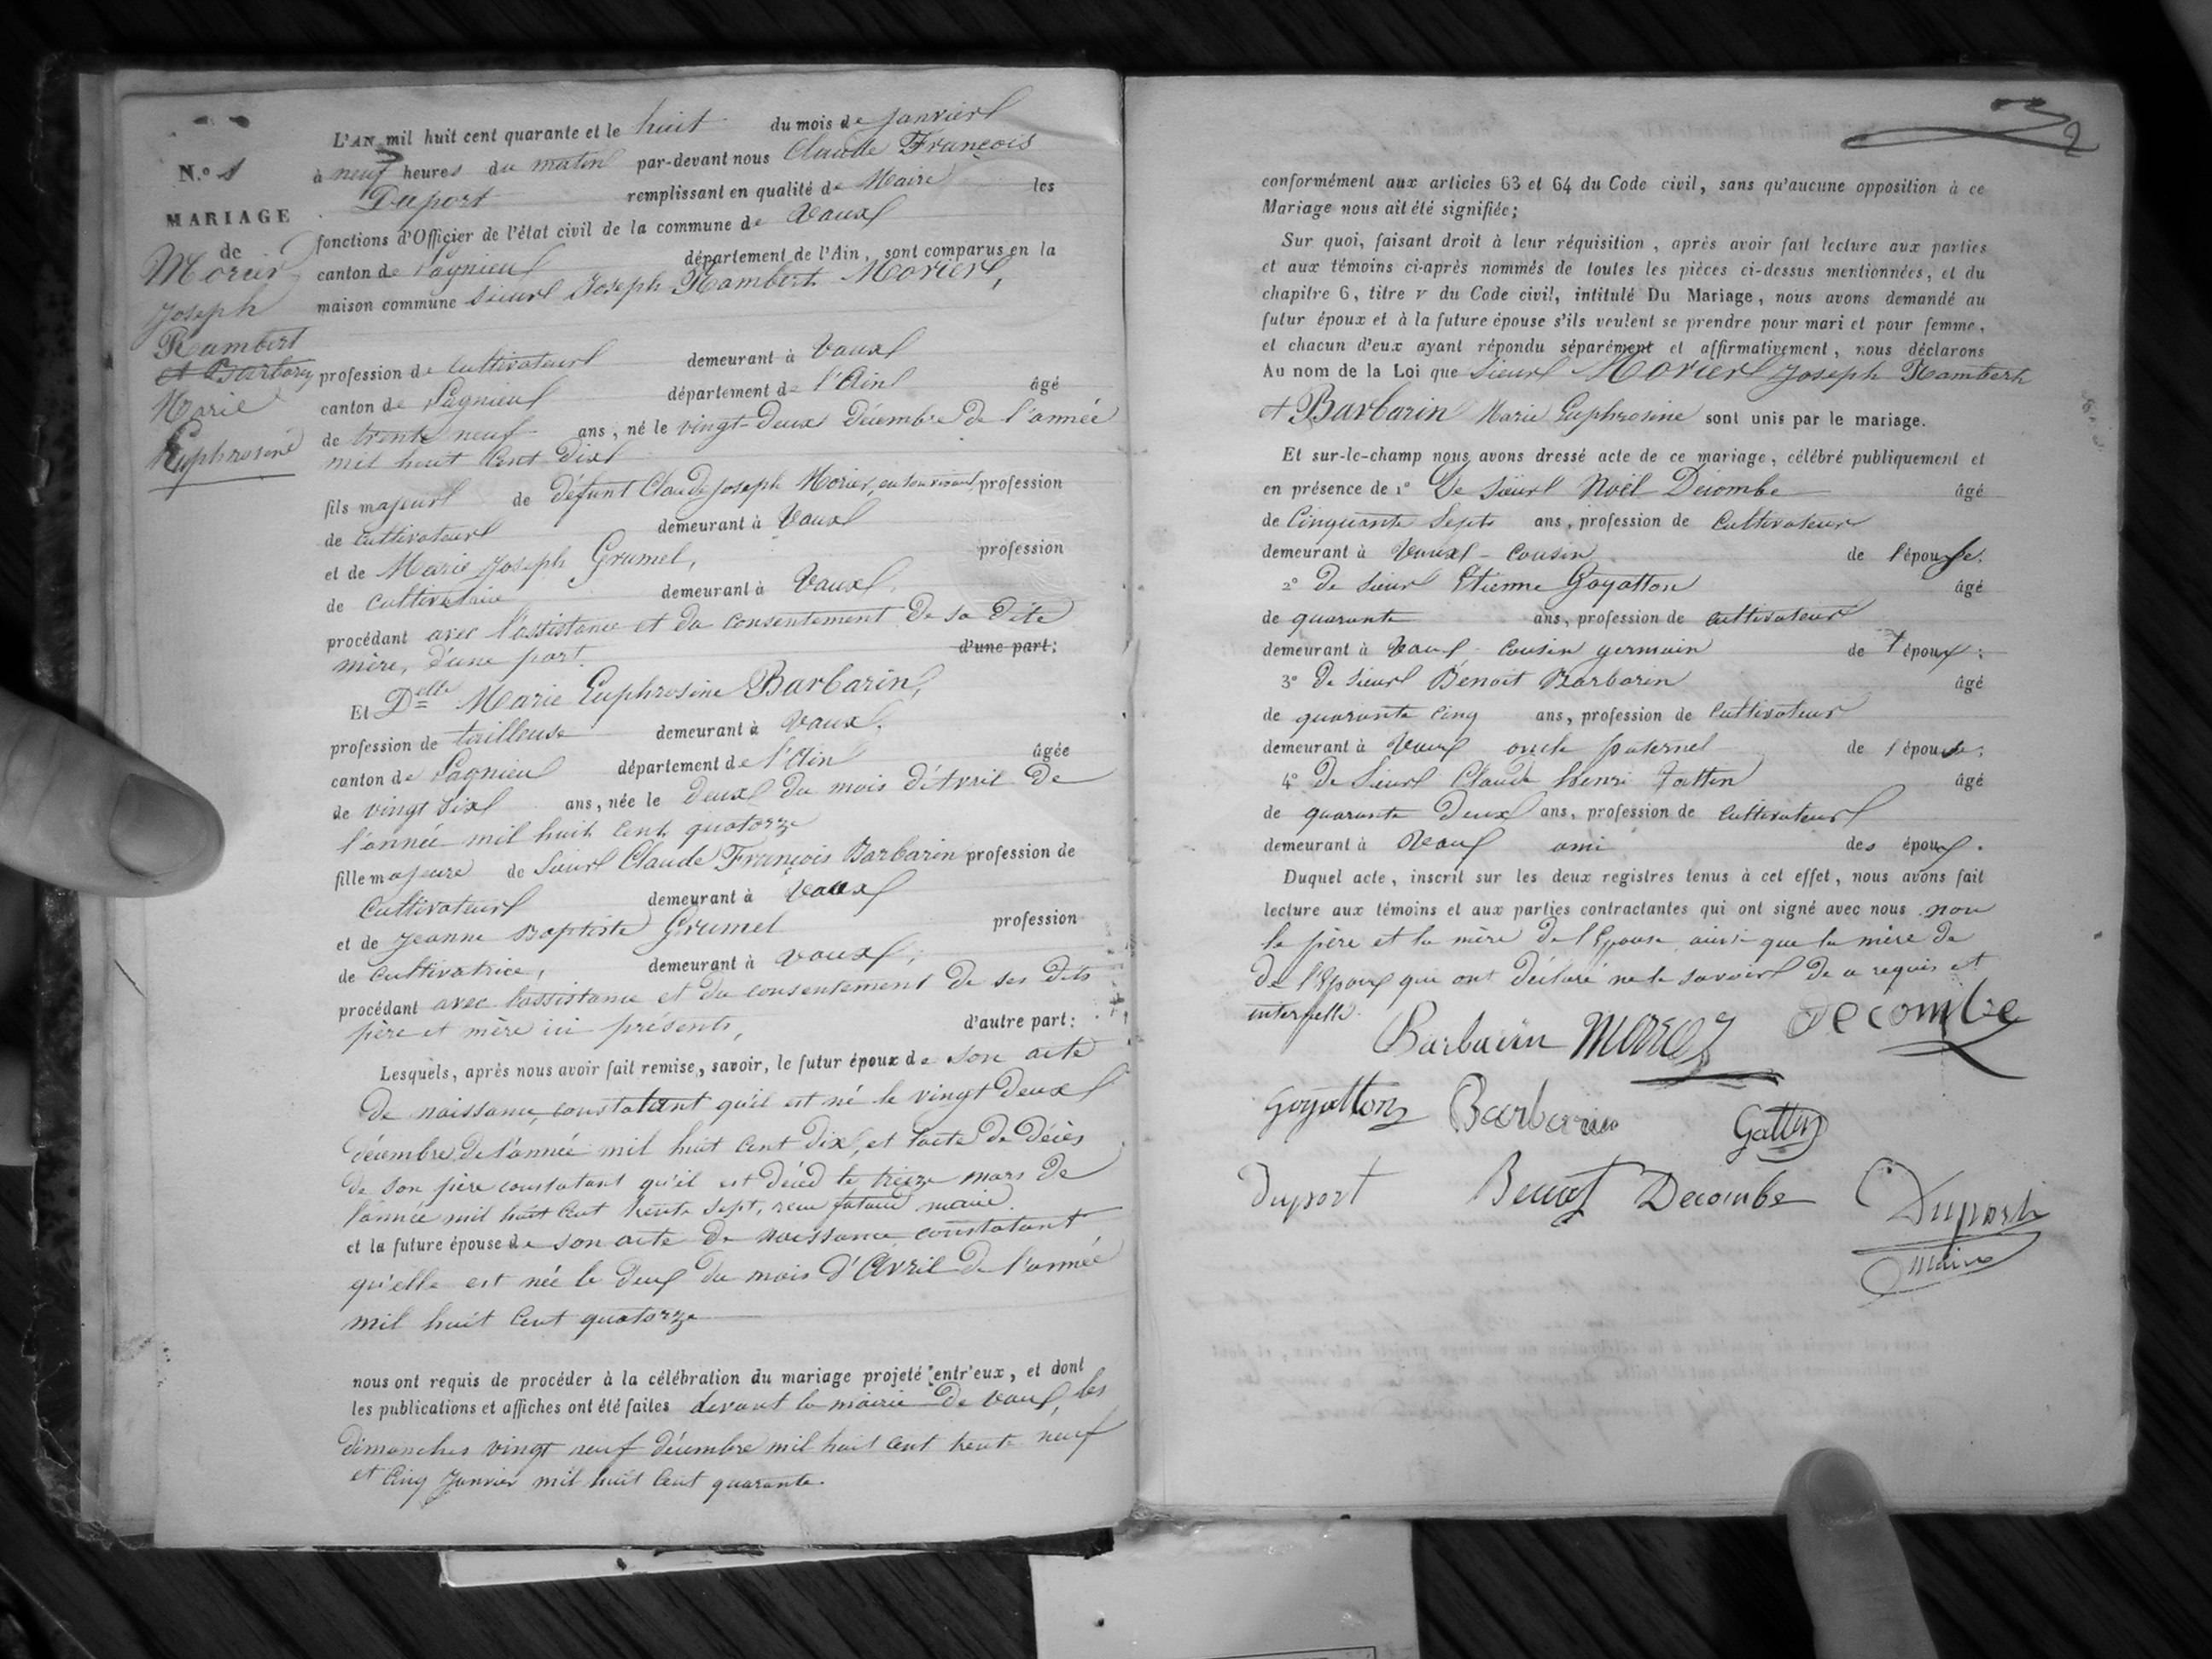 N.º 1
MARIAGE
de
Morier
Joseph
Rambert
et Barbarin
Marie
Euphrosine
L'AN mil huit cent quarante et le huit du mois de Janvier
à neuf heures du matin par-devant nous Claude François
Duport remplissant en qualité de Maire les
fonctions d'Officier de l'état civil de la commune de Vaux
canton de Lagnieu département de l'Ain, sont comparus en la
maison commune Sieur Joseph Rambert Morier,
profession de Cultivateur demeurant à Vaux
canton de Lagnieu département de l'Ain âgé
de trente neuf ans, né le vingt-deux décembre de l'année
mil huit cent dix
fils majeur de défunt Claude Joseph Morier, en son vivant profession
de cultivateur demeurant à Vaux
et de Marie Joseph Grumel, profession
de cultivatrice demeurant à Vaux,
procédant avec l'assistance et du consentement de sa dite
mère, d'une part. d'une part:
Et Delle Marie Euphrosine Barbarin,
profession de tailleuse demeurant à Vaux,
canton de Lagnieu département de l'Ain âgée
de vingt six ans, née le deux du mois d'Avril de
l'année mil huit cent quatorze
fille majeure de Sieur Claude François Barbarin profession de
Cultivateur demeurant à Vaux
et de Jeanne Baptiste Grumel profession
de cultivatrice, demeurant à Vaux,
procédant avec l'assistance et du consentement de ses dits
père et mère ici présents, d'autre part:
Lesquels, après nous avoir fait remise, savoir, le futur époux de son acte
de naissance, constatant qu'il est né le vingt deux
décembre de l'année mil huit cent dix, et l'acte de décès
de son père constatant qu'il est décéd le treize mars de
l'année mil huit cent trente sept, maire
et la future épouse de son acte de naissance constatant
qu'elle est née le deux du mois d'Avril de l'année
mil huit cent quatorze
nous ont requis de procéder à la célébration du mariage projeté entr'eux, et dont
les publications et affiches ont été faites devant la mairie de Vaux, les
dimanches vingt neuf décembre mil huit cent trente neuf
et cinq Janvier mil huit cent quarante.
2
conformément aux articles 63 et 64 du Code civil, sans qu'aucune opposition à ce
Mariage nous ait été signifiée;
Sur quoi, faisant droit à leur réquisition, après avoir fait lecture aux parties
et aux témoins ci-après nommés de toutes les pièces ci-dessus mentionnées, et du
chapitre 6, titre V du Code civil, intitulé Du Mariage, nous avons demandé au
futur époux et à la future épouse s'ils veulent se prendre pour mari et pour femme,
et chacun d'eux ayant répondu séparément et affirmativement, nous déclarons
Au nom de la Loi que Sieur Morier Joseph Rambert
et Barbarin Marie Euphrosine sont unis par le mariage.
Et sur-le-champ nous avons dressé acte de ce mariage, célébré publiquement et
en présence de 1º De Sieur Noël Decombe âgé
de Cinquante Septs ans, profession de Cultivateur
demeurant à Vaux - cousin de l'épouse.
2º De Sieur Etienne Goyatton âgé
de quarante ans, profession de cultivateur
demeurant à Vaux - cousin germain de l'époux;
3º De Sieur Benoit Barbarin âgé
de quarante cinq ans, profession de Cultivateur
demeurant à Vaux oncle paternel de l'épouse;
4º De Sieur Claude Henri Gattin âgé
de quarante Deux ans, profession de Cultivateur
demeurant à Vaux ami des époux.
Duquel acte, inscrit sur les deux registres tenus à cet effet, nous avons fait
lecture aux témoins et aux parties contractantes qui ont signé avec nous non
le père et la mère de l'Epouse ainsi que la mère de
de l'Epoux qui ont déclaré ne le savoir de ce requis et
interpellé.
Barbarin Morier Decombe
Goyatton Barbarin Gattin
Duport Benoit Decombe Duport
Maire